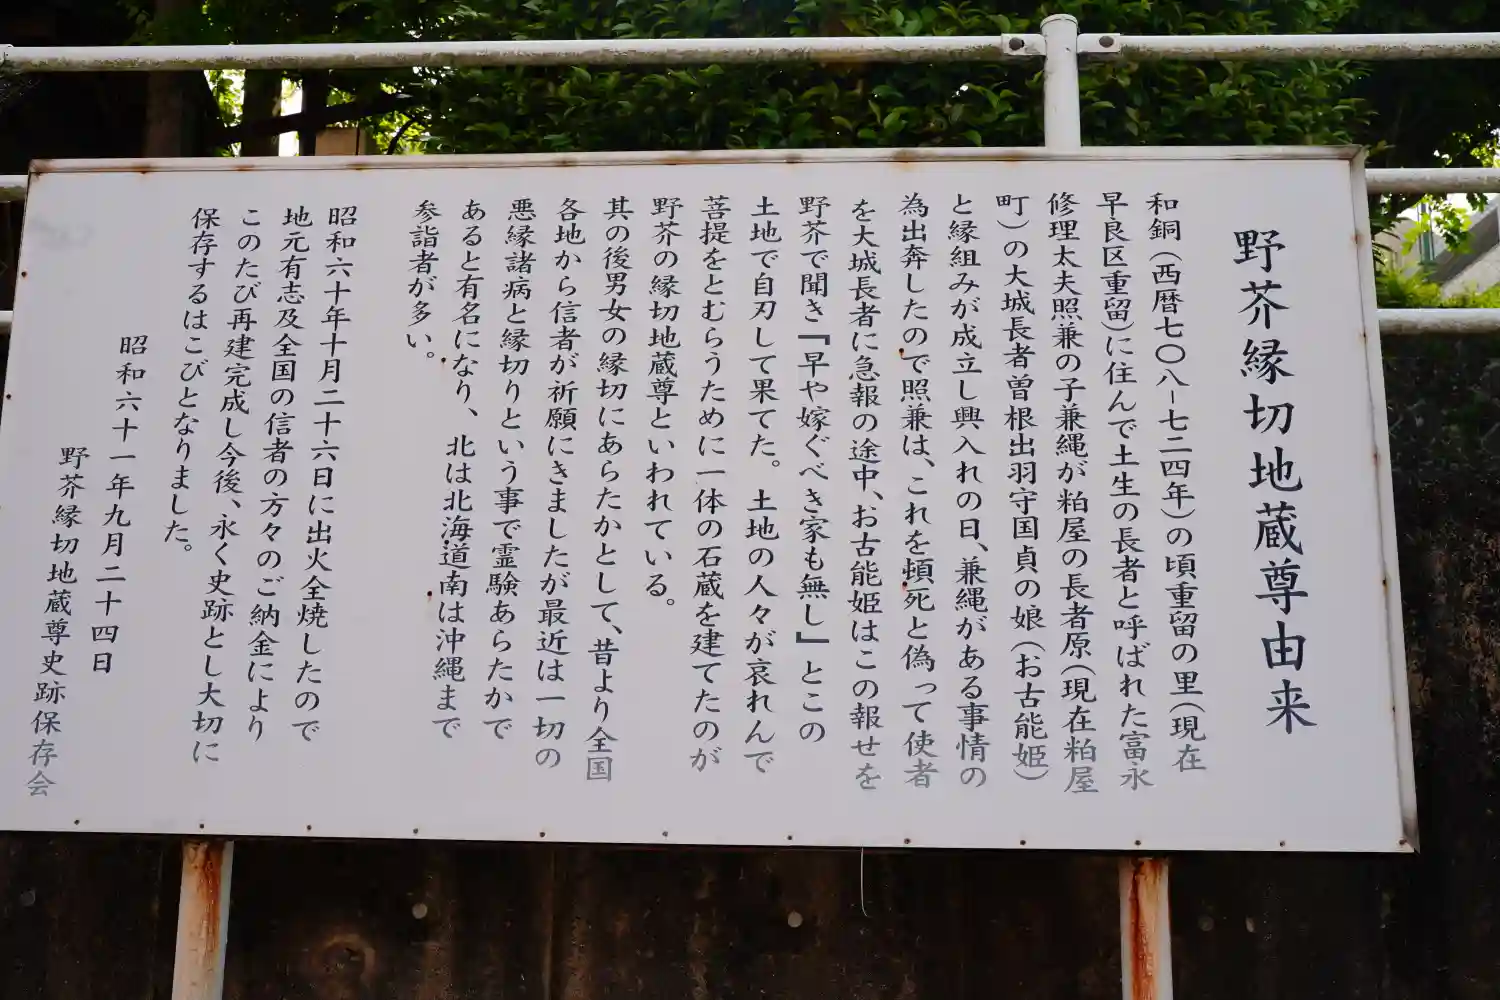 野芥縁切地蔵尊由来
和銅(西暦七〇八−七二四年)の頃重留の里(現在
早良区重留)に住んで土生の長者と呼ばれた富永
修理太夫照兼の子兼縄が粕屋の長者原(現在粕屋
町)の大城長者曽根出羽守国貞の娘(お古能姫)
と縁組みが成立し興入れの日、兼縄がある事情の
為出奔したので照兼は、これを頓死と偽って使者
を大城長者に急報の途中、お古能姫はこの報せを
野芥で聞き『早や嫁ぐべき家も無し』とこの
土地で自刃して果てた。土地の人々が哀れんで
菩提をとむらうために一体の石蔵を建てたのが
野芥の縁切地蔵尊といわれている。
其の後男女の縁切にあらたかとして、昔より全国
各地から信者が祈願にきましたが最近は一切の
悪縁諸病と縁切りという事で霊験あらたかで
あると有名になり、北は北海道南は沖縄まで
参詣者が多い。
昭和六十年十月二十六日に出火全焼したので
地元有志及全国の信者の方々のご納金により
このたび再建完成し今後、永く史跡とし大切に
保存するはこびとなりました。
昭和六十一年九月二十四日
野芥縁切地蔵尊史跡保存会